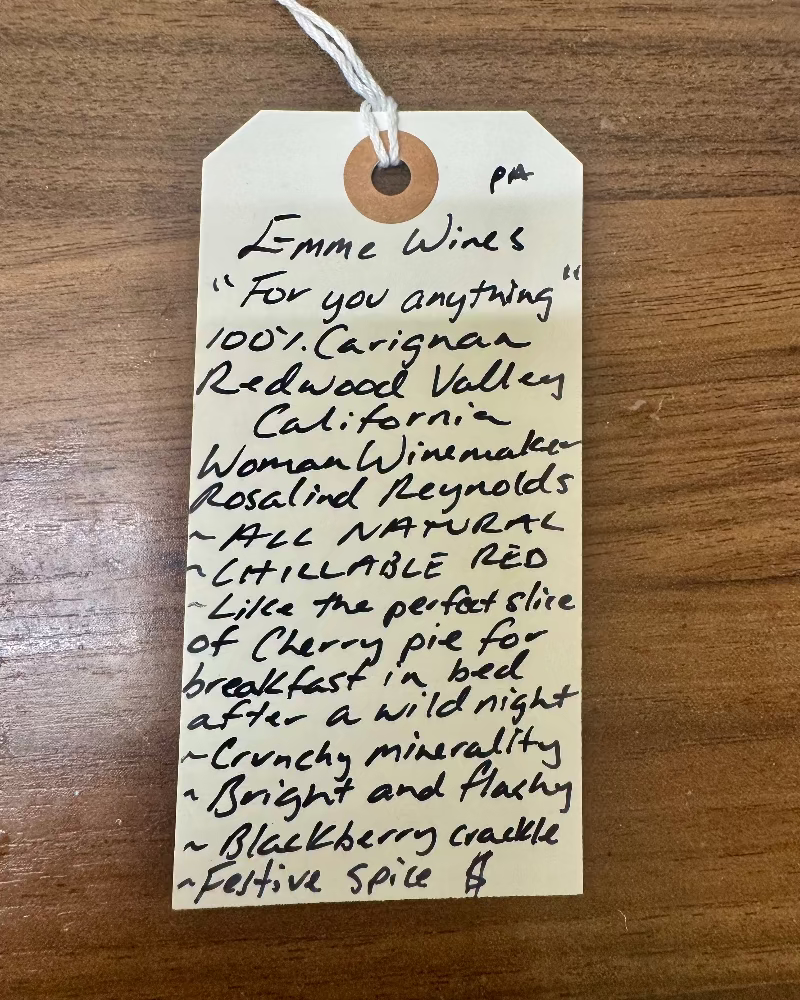 PA
Emme Wines
"For you anything"
100% Carignan
Redwood Valley
California
Woman Winemaker
Rosalind Reynolds
~ALL NATURAL
~CHILLABLE RED
~Like the perfect slice
of Cherry pie for
breakfast in bed
after a wild night
~Crunchy minerality
~Bright and flashy
~Blackberry crackle
~Festive spice $